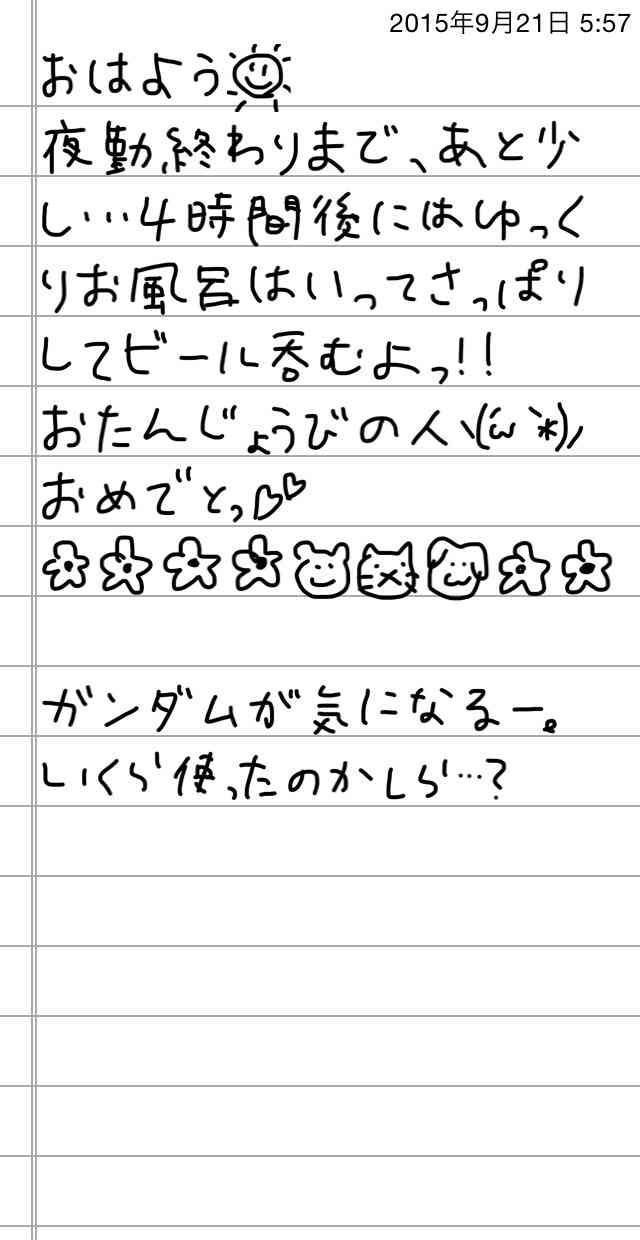 2015年9月21日 5:57
おはよう
夜勤終わりまで、あと少
し…4時間後にはゆっく
りお風呂はいってさっぱり
してビール呑むよっ!!
おたんじょうびの人ヽ(´ω`*)ノ
おめでとっ♡♡
ガンダムが気になるー。
いくら使ったのかしら…?